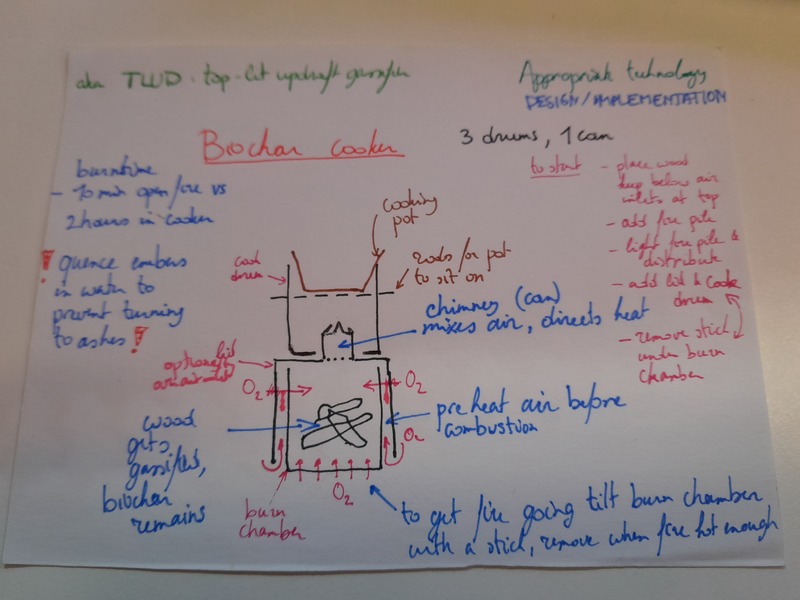 aka TLUD - top-lit updraft gasifier
Appropriate technology
DESIGN/IMPLEMENTATION
Biochar Cooker
3 drums, 1 can
burntime
- 10 min open fire vs
2 hours in cooker
! quence embers
in water to
prevent turning
to ashes!
to start - place wood
keep below air
inlets at top
- add fire pile
- light fire pile &
distribute
- add lid & cook
drum
- remove stick
under burn
chamber
cooking
pot
cook
drum
rods for pot
to sit on
chimney (can)
mixes air, directs heat
optional lid
O2
O2
wood
gets
gassified,
biochar
remains
preheat air before
combustion
O2
O2
burn
chamber
to get fire going tilt burn chamber
with a stick, remove when fire hot enough